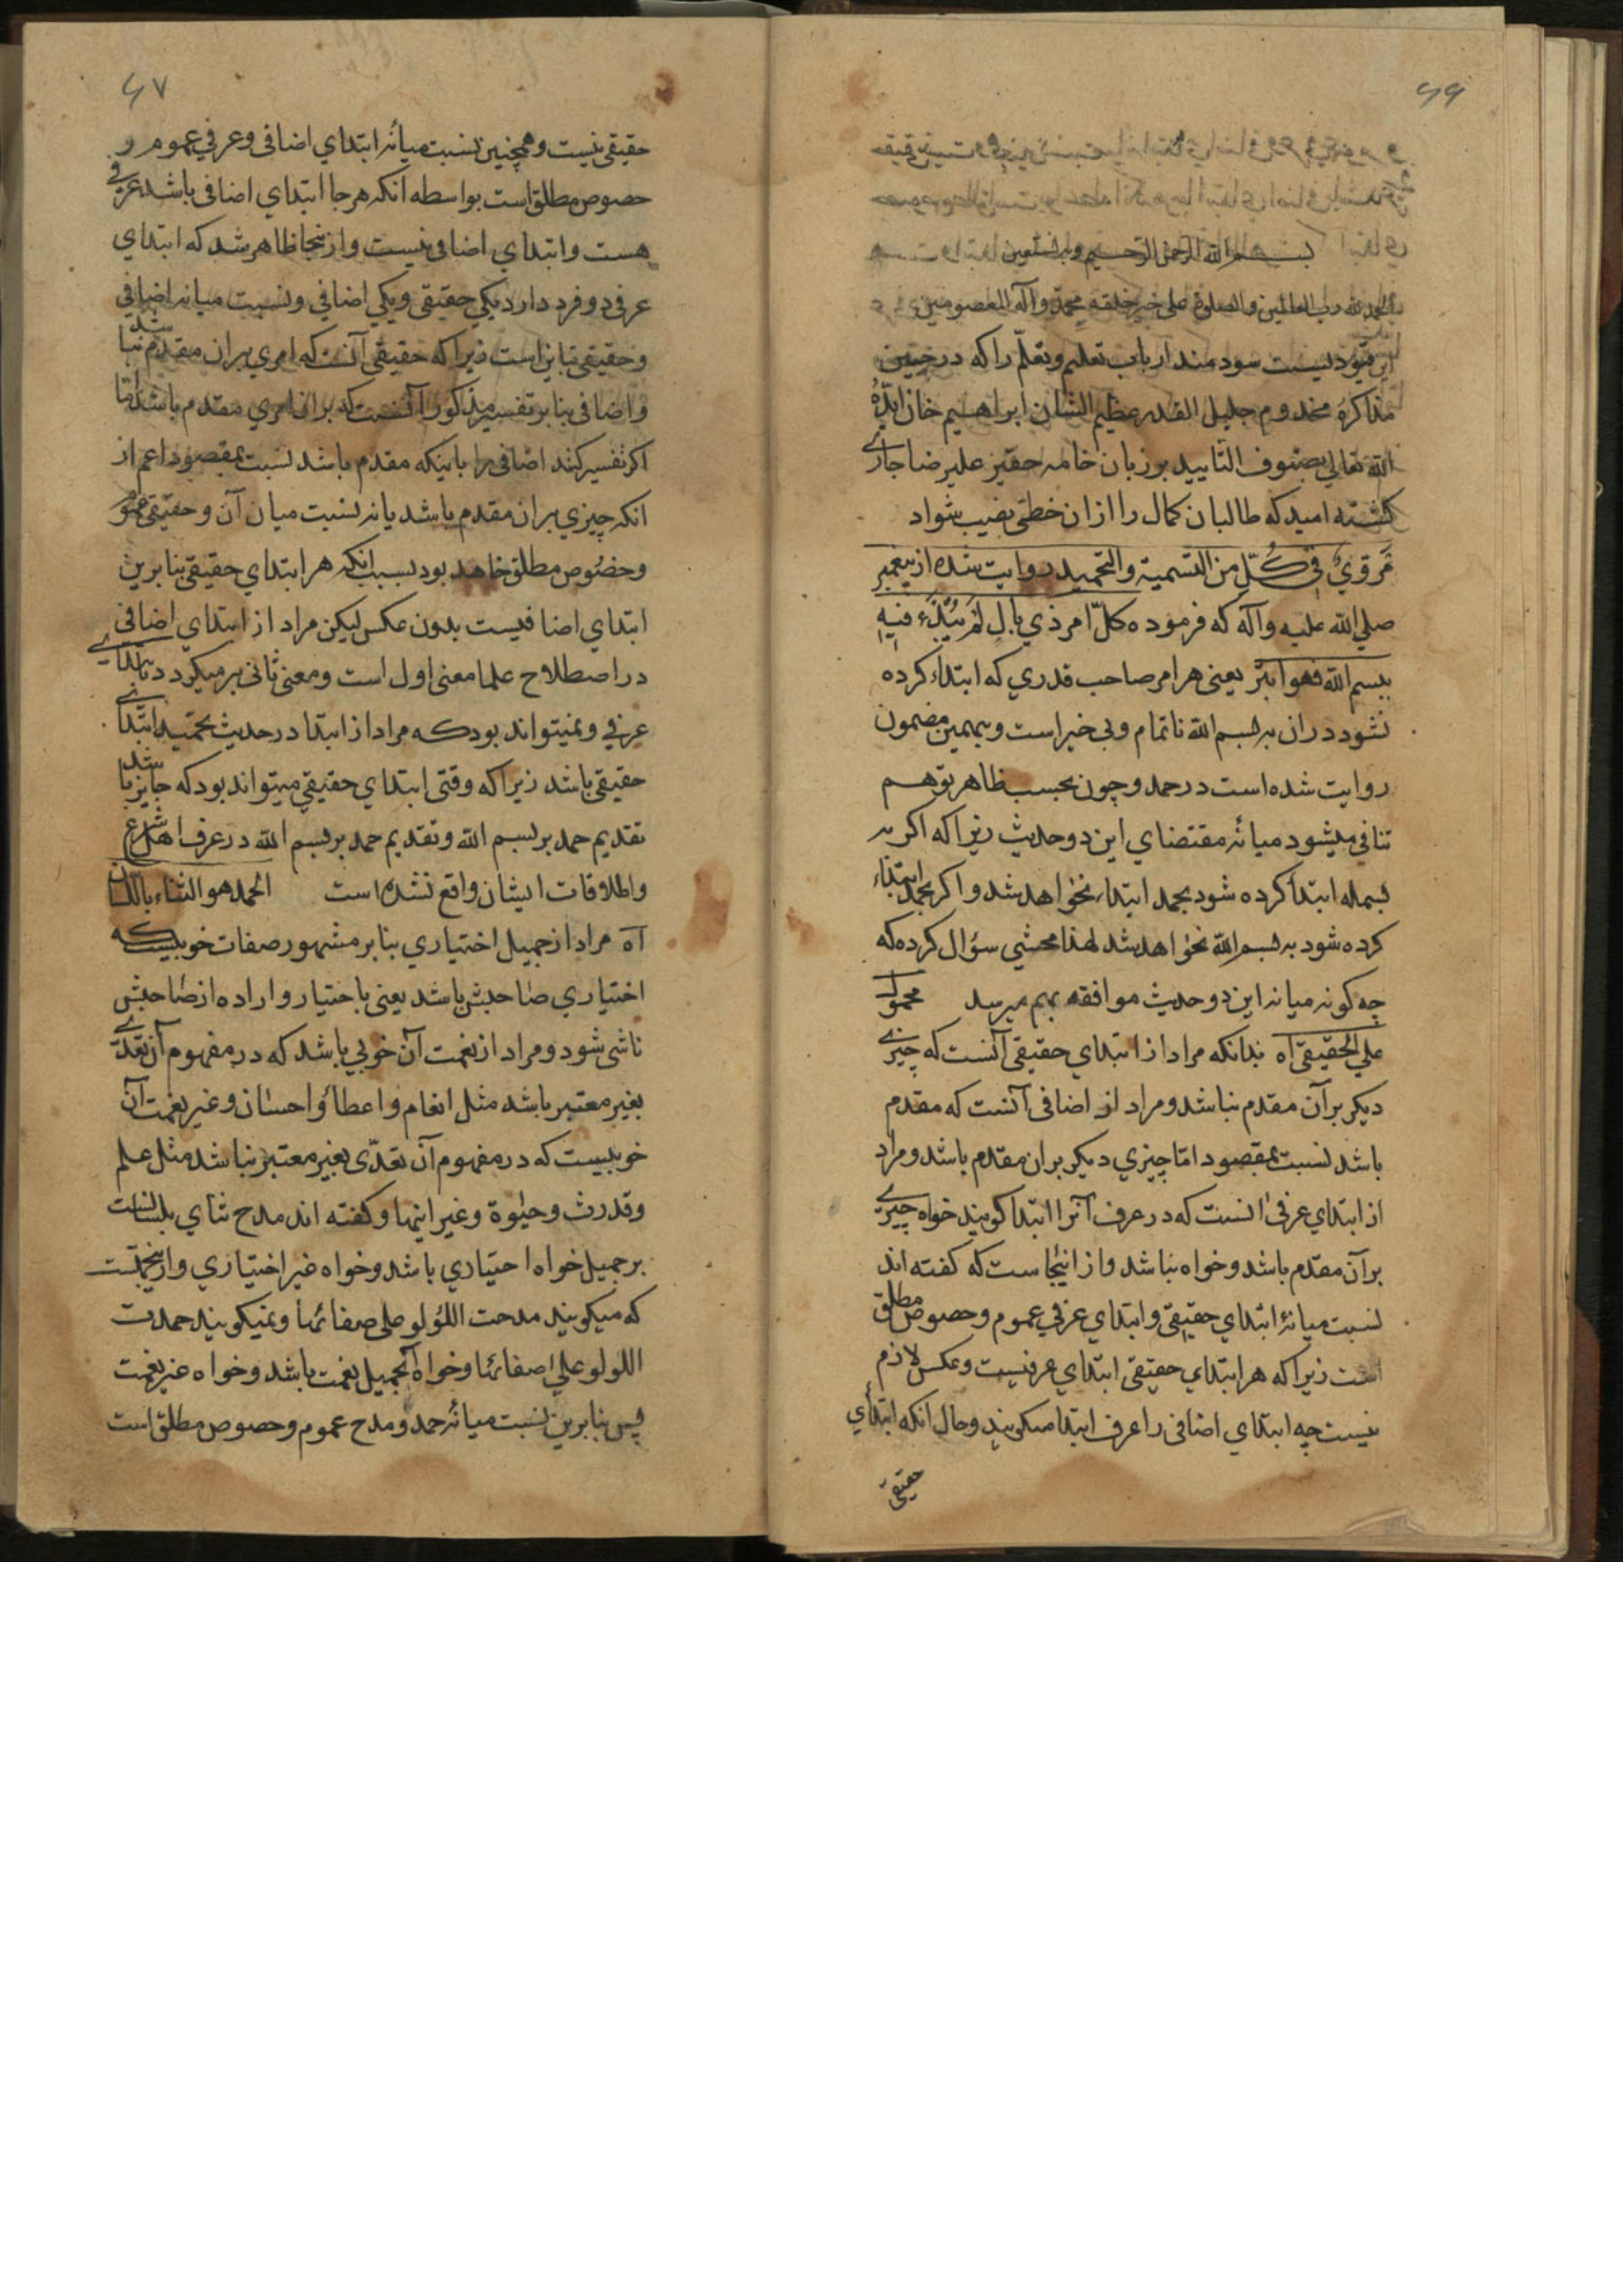 ۶۶
بسم الله الرحمن الرحیم وبه نستعین
الحمد لله رب العالمین والصلوة علی خیر خلقه محمد وآله المعصومین
این قیودیست سودمند ارباب تعلیم وتعلّم را که در حین
مذاکرهٔ مخدوم جلیل القدر عظیم الشان ابراهیم خان ایّدهُ
الله تعالی بصنوف التایید بر زبان خامه حقیر علیرضا جاری
کشته امید که طالبان کمال را ازان حظّی نصیب شواد
مَرویٌ فی کُلّ من التسمیة والتحمید روایت شده از پیغمبر
صلی الله علیه وآله که فرموده کلّ امر ذي بالٍ لَمْ یُبْدَء فیهِ
ببسم الله فهو ابتر یعنی هر امر صاحب قدري که ابتداء کرده
نشود دران به بسم الله ناتمام وبی خیر است وبهمین مضمون
روایت شده است در حمد وچون بحسب ظاهر توهم
تنافي میشود میانهٔ مقتضاي این دو حدیث زیرا که اکر به
بسمله ابتدأ کرده شود بحمد ابتداء نخواهد شد واکر بحمد ابتداء
کرده شود به بسم الله نخواهد شد لهذا محشي سؤال کرده که
چه کونه میانه این دو حدیث موافقه بهم میرسد محمولٌ
علی الحقیقی آه بدانکه مراد از ابتدای حقیقی آنست که چیزی
دیکر برآن مقدم نباشد ومراد از اضافی آنست که مقدم
باشد نسبت بمقصود امّا چیزي دیکر بران مقدم باشد ومراد
از ابتداي عرفی انست که در عرف آنرا ابتدا کویند خواه چیزی
برآن مقدم باشد وخواه نباشد واز اینجاست که کفته اند
نسبت میانهٔ ابتداي حقیقی وابتداي عرفي عموم وخصوص مطلق
است زیرا که هر ابتداي حقیقی ابتداي عرفیست وعکس لازم
نیست چه ابتدای اضافی را عرف ابتدا میکویند وحال انکه ابتدأي
حقیقی
۶۷
حقیقی نیست وهمچنین نسبت میانهٔ ابتداي اضافی وعرفي عموم و
خصوص مطلق است بواسطه انکه هر جا ابتداي اضافی باشد عرفی
هست وابتداي اضافی نیست واز ینجا ظاهر شد که ابتداي
عرفی دو فرد دارد یکي حقیقی ویکي اضافي ونسبت میانه اضافي
وحقیقی تباین است زیرا که حقیقی آنست که امري بران مقدم نباشد
واضافی بنا بر تفسیر مذکور آنست که بران امري مقدم باشد امّا
اکر تفسیر کنند اضافی را باینکه مقدم باشد نسبت بمقصود اعم از
انکه چیزي بران مقدم باشد یا نه نسبت میان آن وحقیقی عموم
وخصُوص مطلق خاهد بود بسبب انکه هر ابتداي حقیقی بنا برین
ابتداي اضافیست بدون عکس لیکن مراد از ابتداي اضافی
در اصطلاح علما معنی اول است ومعنی ثانی بر میکردد بابتدای
عرفي ونمیتواند بود که مراد از ابتدا در حدیث تحمید ابتدای
حقیقی باشد زیرا که وقتی ابتداي حقیقي میتواند بود که جایز باشد
تقدیم حمد بر بسم الله وتقدیم حمد بر بسم الله در عرف اهل شرع
واطلاقات ایشان واقع نشده است الحمد هو الثناء باللسان
آه مراد از جمیل اختیاري بنا بر مشهور صفات خوبیست که
اختیاري صاحبش باشد یعنی باختیار واراده از صاحبش
ناشی شود ومراد از نعمت آن خوبي باشد که در مفهوم آن تعدّی
بغیر معتبر باشد مثل انعام واعطأ واحسان وغیر نعمت آن
خوبیست که در مفهوم آن تعدّی بغیر معتبر نباشد مثل علم
وقدرت وحیٰوة وغیر اینها وکفته اند مدح ثناي بلسانست
بر جمیل خواه اختیاري باشد وخواه غیر اختیاري وازینجهتست
که میکویند مدحت اللؤلو علی صفائها ونمیکویند حمدت
اللولو علی صفائها وخواه آنجمیل نعمت باشد وخواه غیر نعمت
پس بنا برین نسبت میانهٔ حمد ومدح عموم وخصوص مطلق است